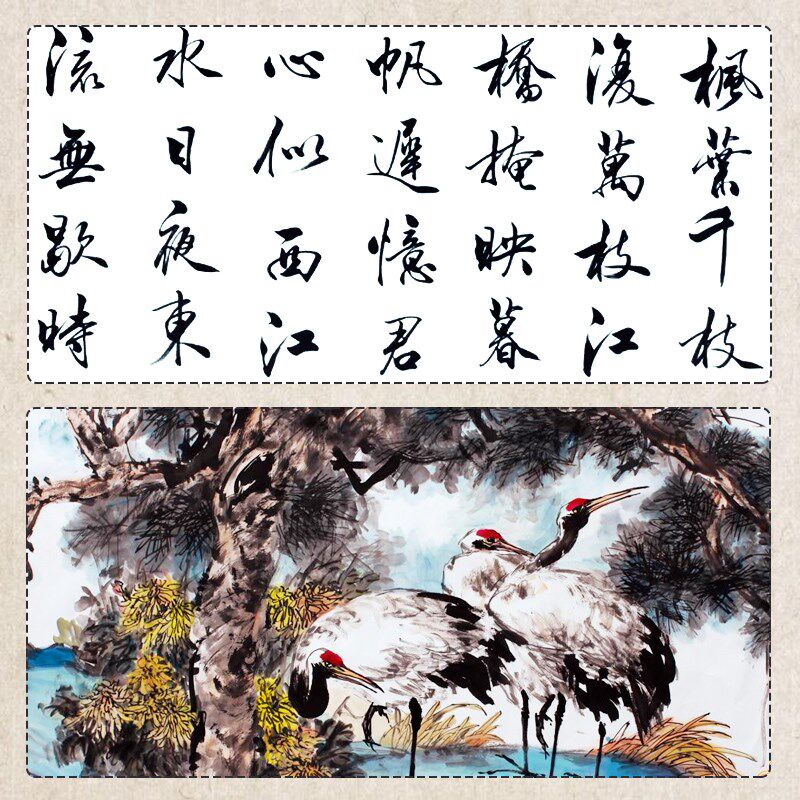 楓葉千枝
復萬枝江
橋掩映暮
帆遲憶君
心似西江
水日夜東
流無歇時